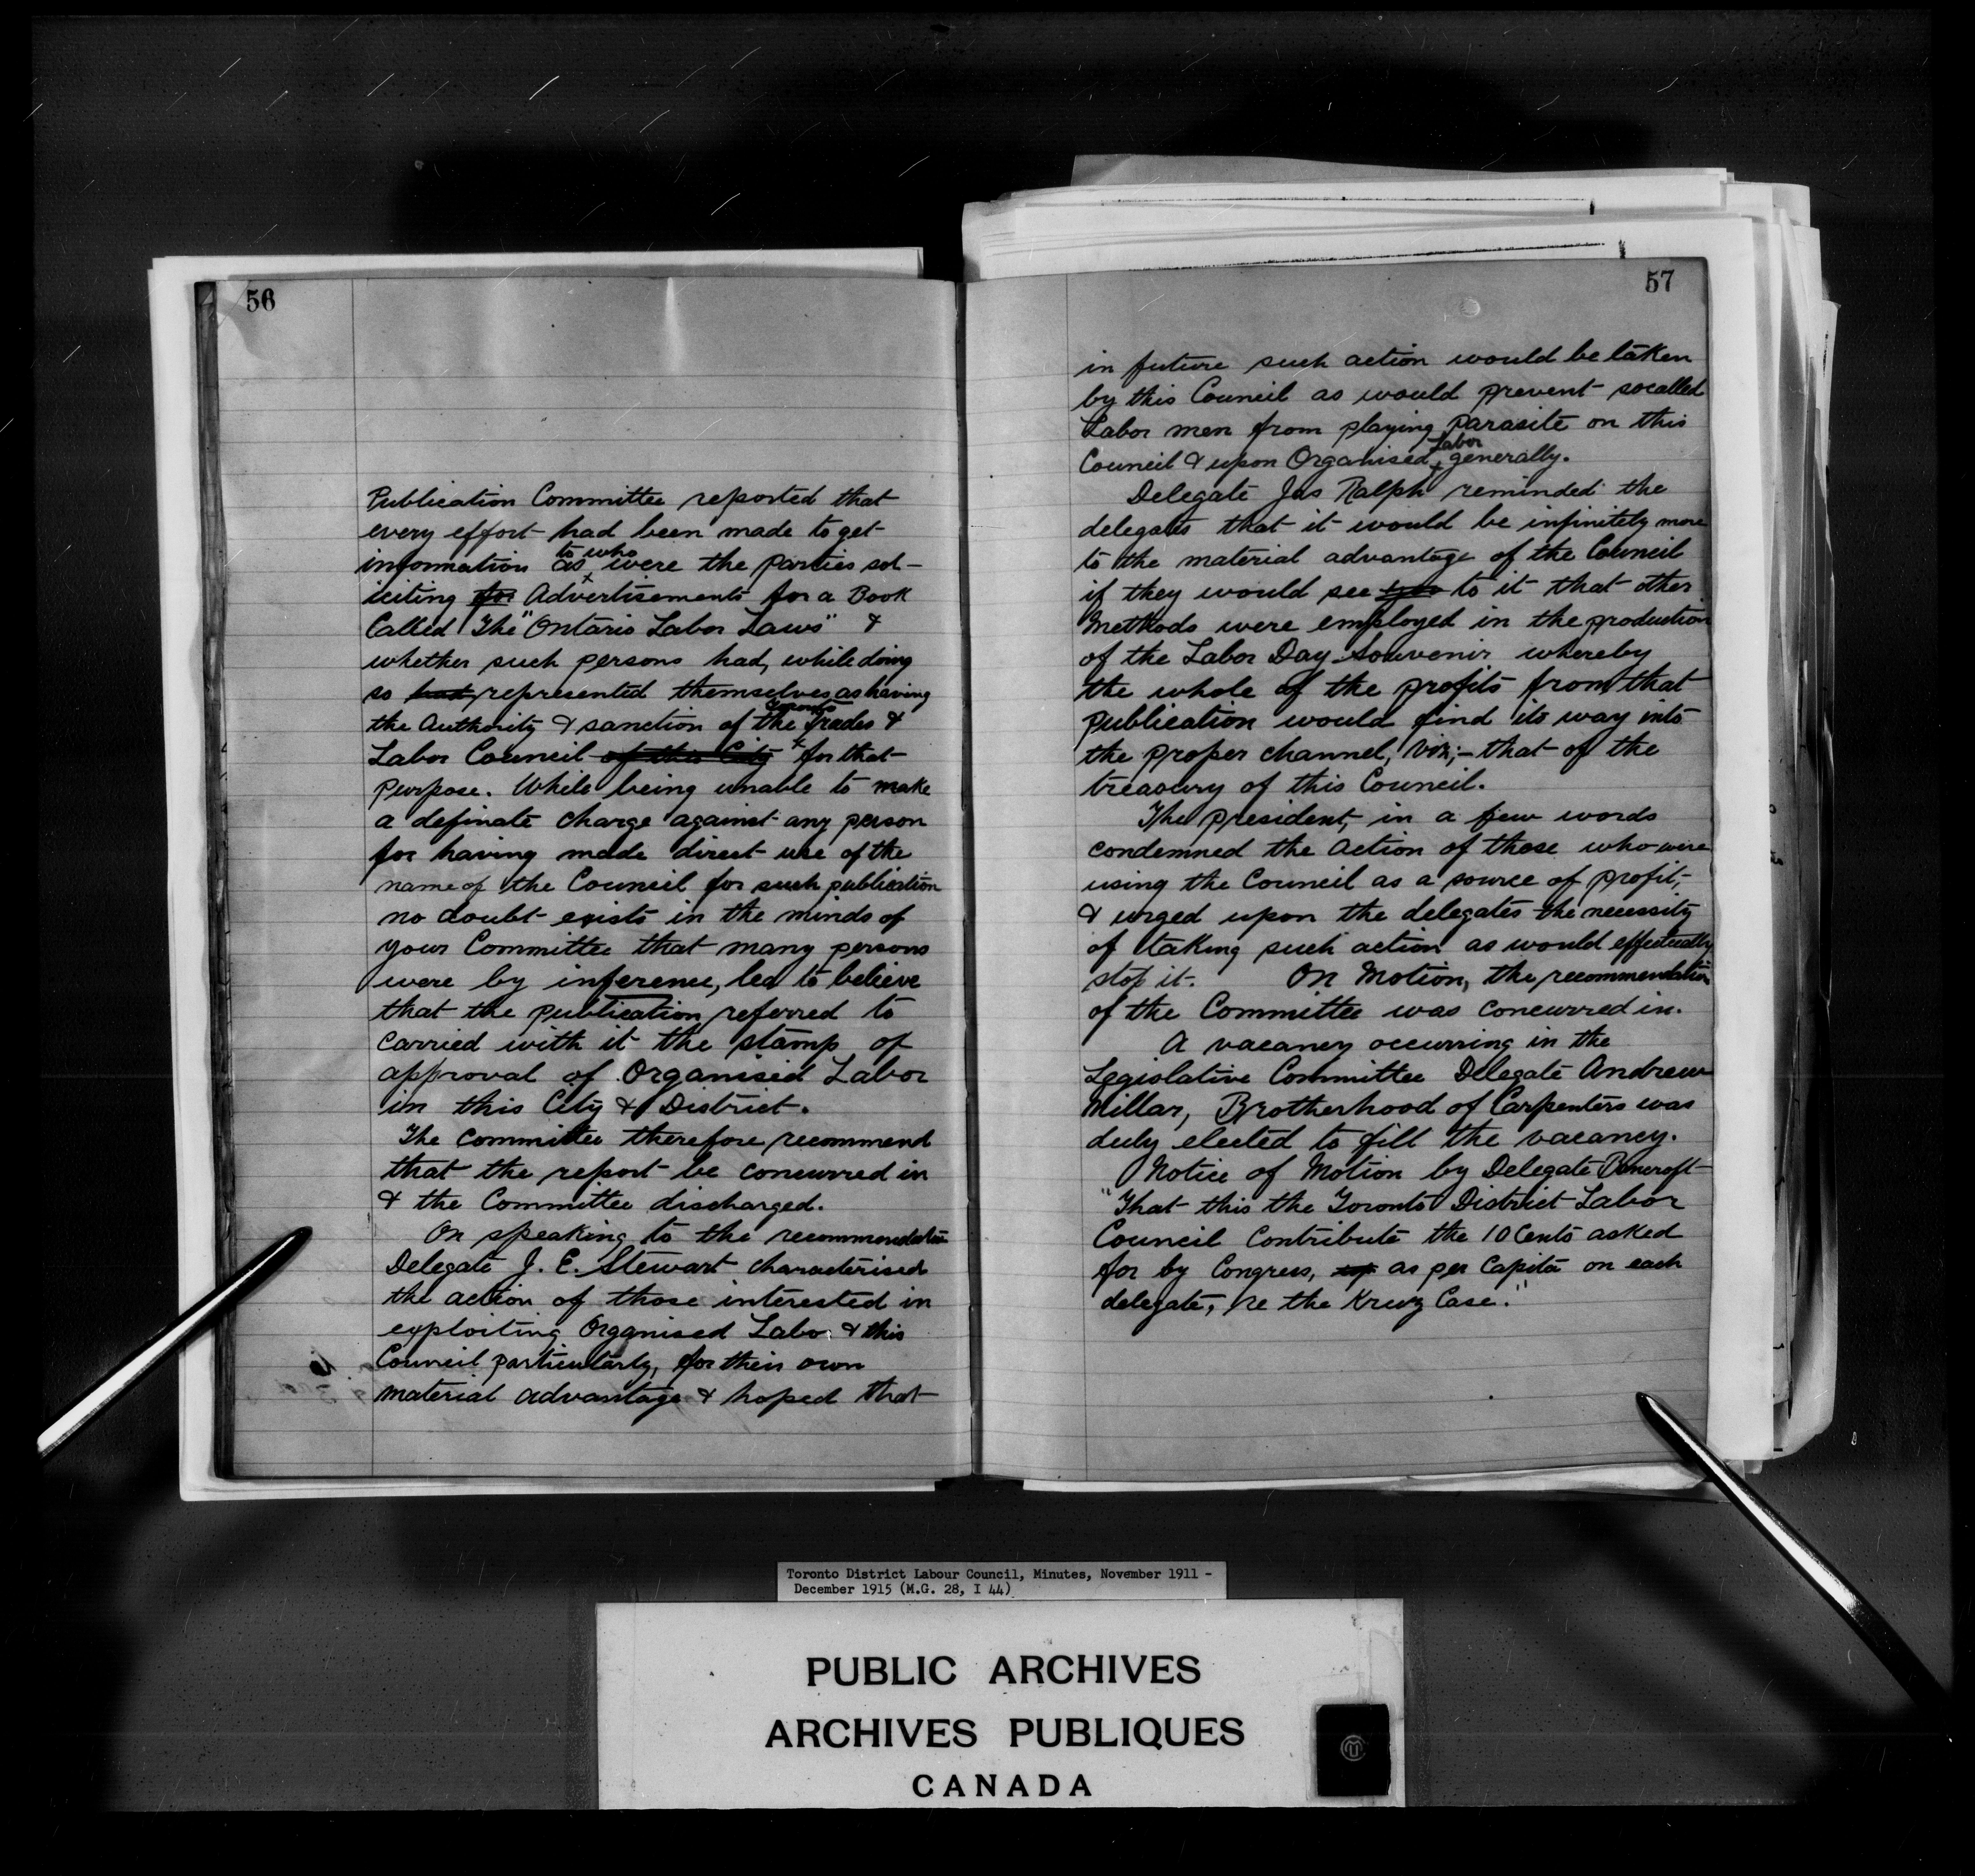 56
Publication Committee reported that
every effort had been made to get
information as to who were the parties sol-
iciting for Advertisements for a Book
Called The "Ontario Labor Laws" &
whether such persons had, while doing
so had represented themselves as having
the Authority & sanction of the Toronto Trades &
Labor Council of this City for that
purpose. While being unable to make
a definate charge against any person
for having made direct use of the
name of the Council for such publication
no doubt exists in the minds of
your Committee that many persons
were by inference, led to believe
that the publication referred to
carried with it the stamp of
approval of Organised Labor
in this City & District.
The Committee therefore recommend
that the report be concurred in
& the Committee discharged.
On speaking to the recommendation
Delegate J. E. Stewart characterised
the action of those interested in
exploiting Organised Labor & this
Council particularly, for their own
material advantage & hoped that
57
in future such action would be taken
by this Council as would prevent socalled
Labor men from playing parasite on this
Council & upon Organised Labor generally.
Delegate Jas Ralph reminded the
delegates that it would be infinitely more
to the material advantage of the Council
if they would see to it that other
Methods were employed in the production
of the Labor Day Souvenir whereby
the whole of the profits from that
publication would find its way into
the proper channel, Viz;- that of the
treasury of this Council.
The president, in a few words
condemned the action of those who were
using the Council as a source of profit,
& urged upon the delegates the necessity
of taking such action as would effectually
stop it. On Motion, the recommendation
of the Committee was concurred in.
A vacancy occurring in the
Legislative Committee Delegate Andrew
Millar, Brotherhood of Carpenters was
duly elected to fill the vacancy.
Notice of Motion by Delegate Bancroft
"That this the Toronto District Labor
Council Contribute the 10 Cents asked
for by Congress, as per Capita on each
delegate, re the Kruz Case."
Toronto District Labour Council, Minutes, November 1911 -
December 1915 (M.G. 28, I 44)
PUBLIC ARCHIVES
ARCHIVES PUBLIQUES
CANADA